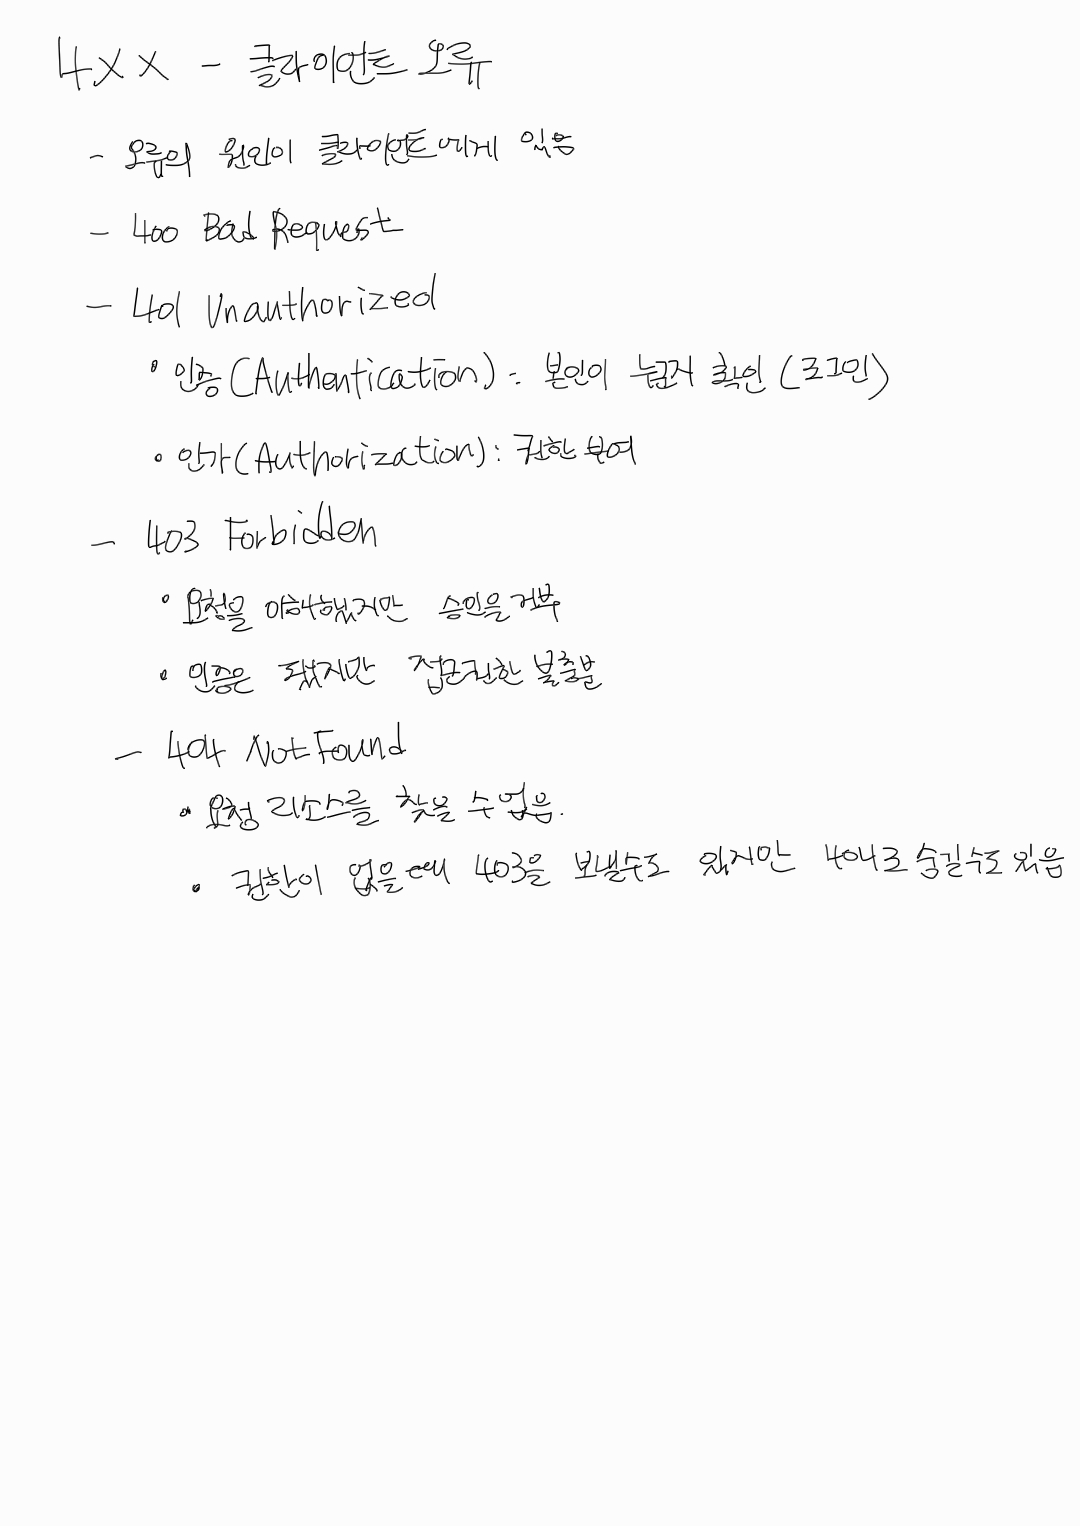 4XX - 클라이언트 오류
- 오류의 원인이 클라이언트에게 있음
- 400 Bad Request
- 401 Unauthorized
• 인증(Authentication): 본인이 누군지 확인 (로그인)
• 인가(Authorization): 권한 부여
- 403 Forbidden
• 요청을 이해했지만 승인을 거부
• 인증은 됐지만 접근권한 불충분
- 404 Not Found
• 요청 리소스를 찾을 수 없음.
• 권한이 없을때 403을 보낼수도 있지만 404로 숨길수도 있음